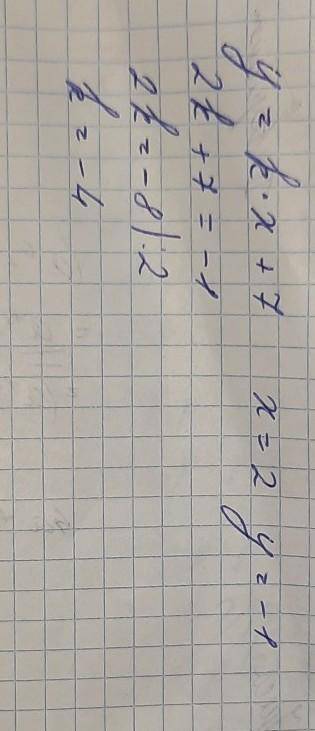 y = k · x + 7   x = 2   y = -1
2k + 7 = -1
2k = -8 | :2
k = -4